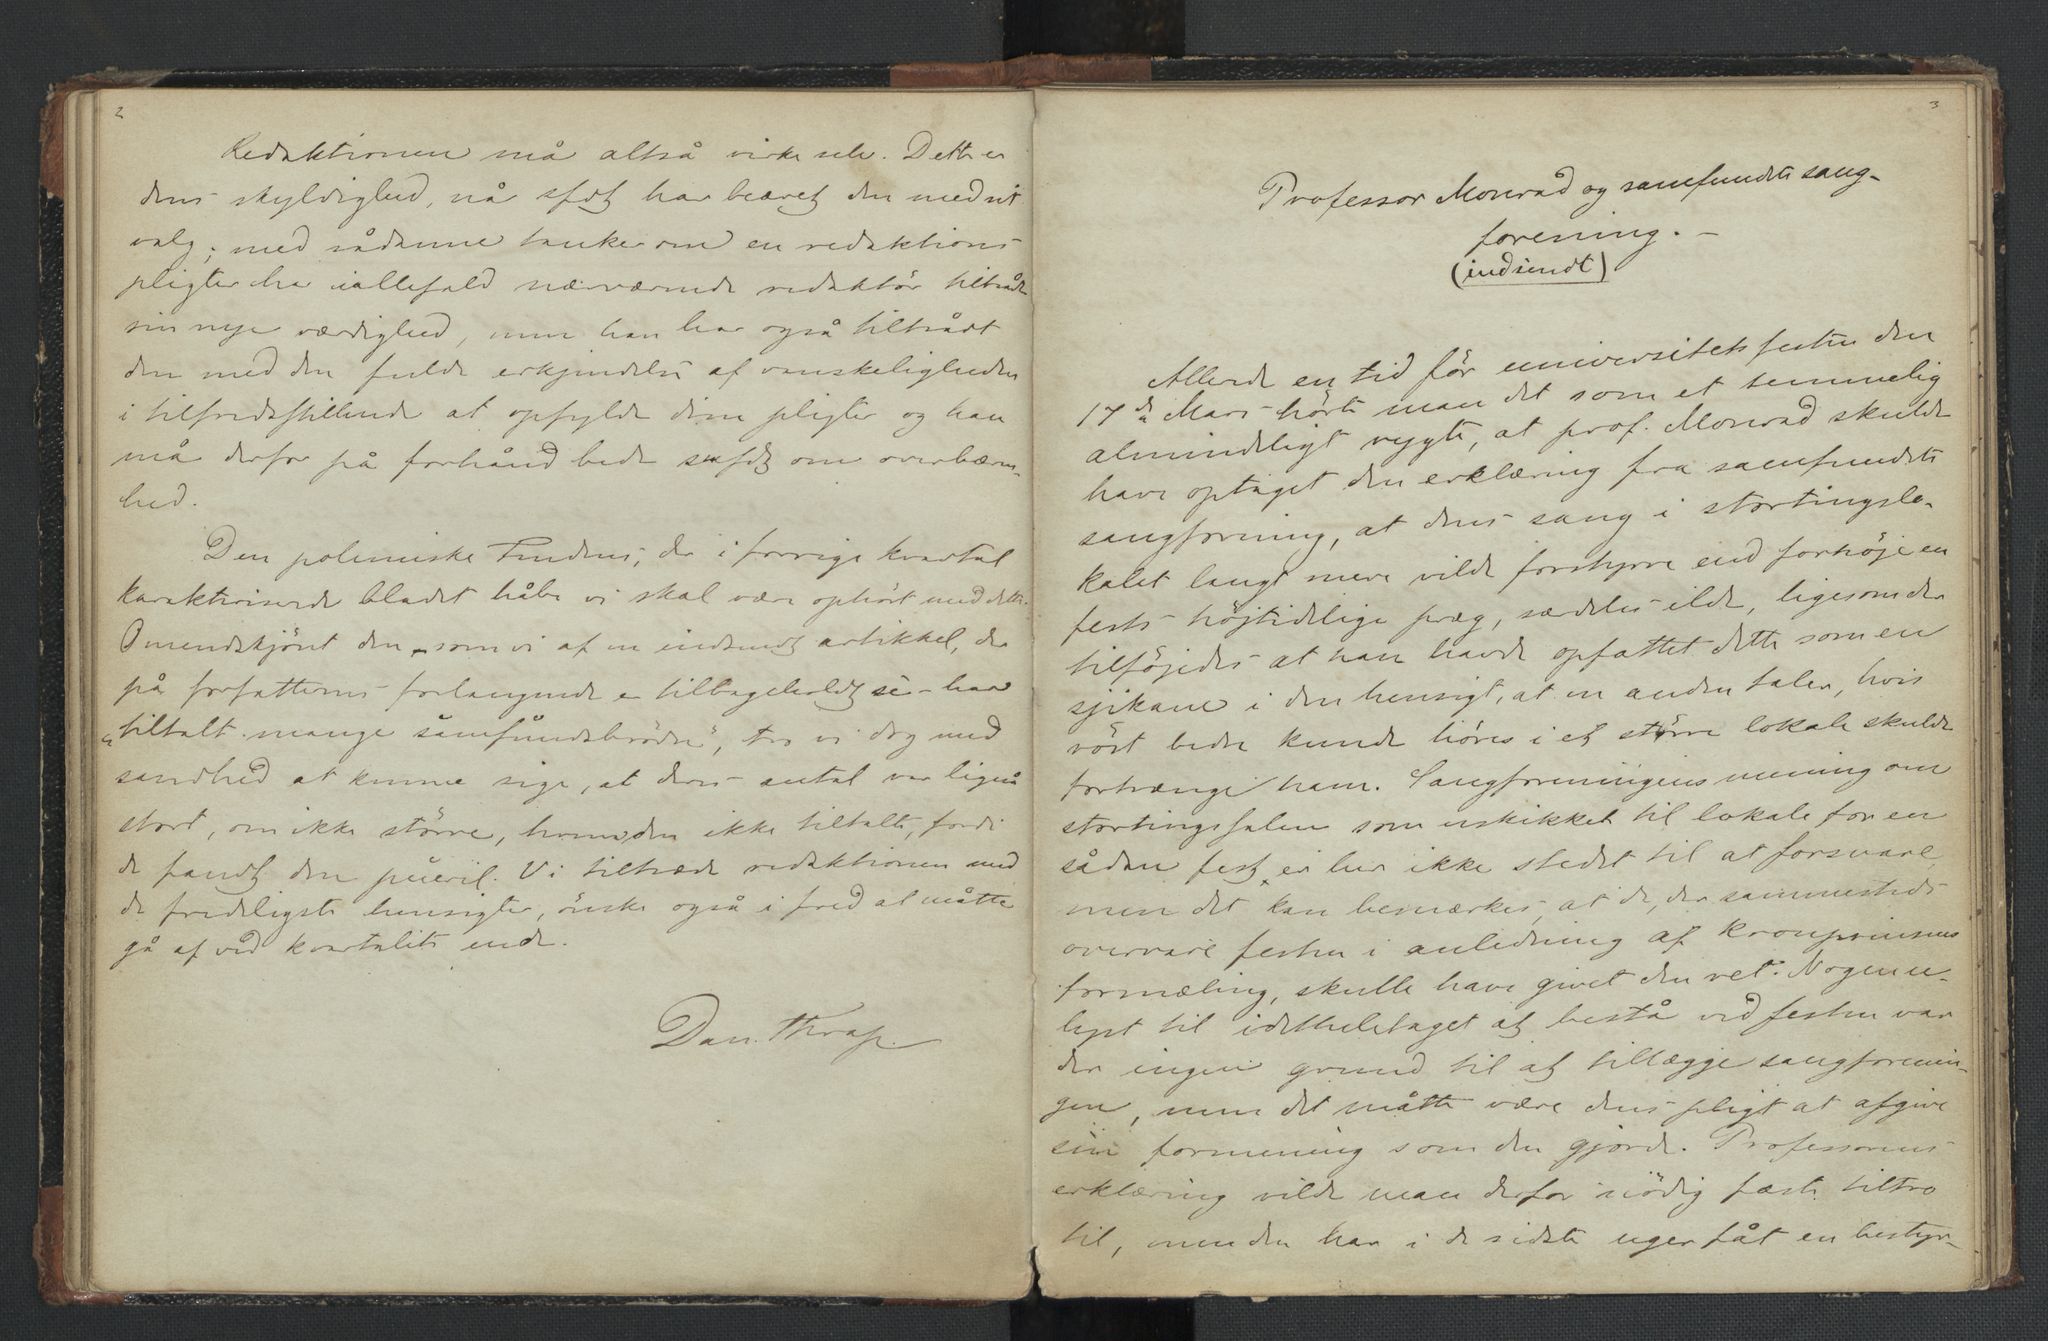 2
Redaktionen må altså virke selv. Dette er
dens skyldighed, når sfdt har beæret den med sit
valg; med sådanne tanker om en redaktions
pligter har iallefald nærværende redaktör tiltrådt
sin nye værdighed, men han har også tiltrådt
den med den fulde erkjendelse af vanskeligheden
i tilfredsstillende at opfylde disse pligter og han
må derfor på forhånd bede sfdt om overbæren-
hed.
Den polemiske Tendens, der i forrige kvartal
karakteriserede bladet håbe vi skal være ophört med dette.
Omendskjönt den – som vi af en indsendt artikkel, der
på forfatterens forlangende er tilbageholdt se – har
„tiltalt mange samfundsbrödre", tro vi dog med
sandhed at kunne sige, at deres antal var ligeså
stort, om ikke större, hvem den ikke tiltalte, fordi
de fandt den pueril. Vi tiltræde redaktionen med
de fredeligste hensigter, önske også i fred at måtte
gå af ved kvartalets ende.
Dan. Thrap.
3
Professor Monrad og samfundets sang-
forening. –
(indsendt)
Allerede en tid för universitetsfesten den
17de Mars hörte man det som et temmelig
almindeligt rygte, at prof. Monrad skulde
have optaget den erklæring fra samfundets
sangforening, at dens sang i stortingslo-
kalet langt mere vilde forstyrre end forhöje en
fests höjtidelige præg, særdeles ilde, ligesom der
tilföjedes at han havde opfattet dette som en
sjikane i den hensigt, at en anden taler, hvis
röst bedre kunde höres i et större lokale skulde
fortrænge ham. Sangforeningens mening om
stortingssalen som uskikket til lokale for en
sådan fest er her ikke stedet til at forsvare,
men det kan bemærkes, at de, der sammesteds
overvare festen i anledning af kronprinsens
formæling, skulle have givet den ret. Nogen u-
lyst til idetheletaget at bestå ved festen var
der ingen grund til at tillægge sangforenin-
gen, men det måtte være dens pligt at afgive
sin formening som den gjorde. Professorens
erklæring vilde man derfor nödig fæste tiltro
til, men den har i de sidste uger fåt en bestyr-